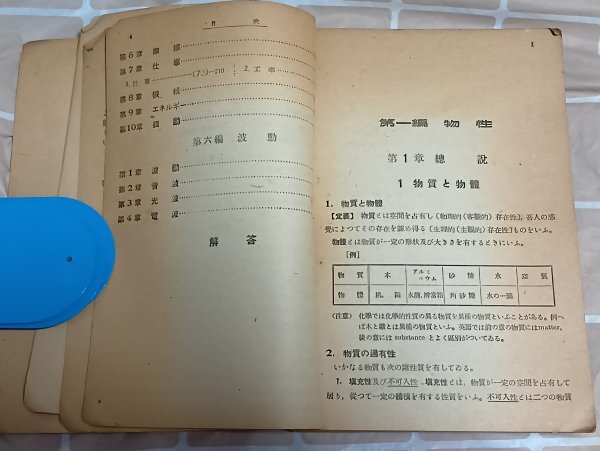 目 次
第6章 摩 擦
第7章 仕 事
1. 仕 事……(70)…210 2. 工 率
第8章 機 械
第9章 エネルギー
第10章 振 動
第六編 波 動
第1章 波 動
第2章 音 波
第3章 光 波
第4章 電 波
解 答
1
第一編 物性
第1章 總 説
1 物質と物體
1. 物質と物體
【定義】 物質とは空間を占有し〔物理的(客觀的)存在性〕,吾人の感
覺によつてその存在を認め得る〔生理的(主觀的)存在性〕ものをいふ。
物體とは物質が一定の形狀及び大きさを有するときにいふ。
[例]
物 質 木 アルミニウム 砂 糖 水 空 氣
物 體 机, 箱 水鏡, 辨當箱 角砂糖 水の一滴
(注意) 化學では化學的性質の異る物質を異種の物質といふことがある。例へ
ば木と鐵とは異種の物質といふ。英語では前の意の物質にはmatter,
後の意には substance とよく區別がついてゐる。
2. 物質の通有性
いかなる物質も次の諸性質を有してゐる。
1. 填充性及び不可入性 填充性とは, 物質が一定の空間を占有して
居り, 從つて一定の體積を有する性質をいふ。不可入性とは二つの物質